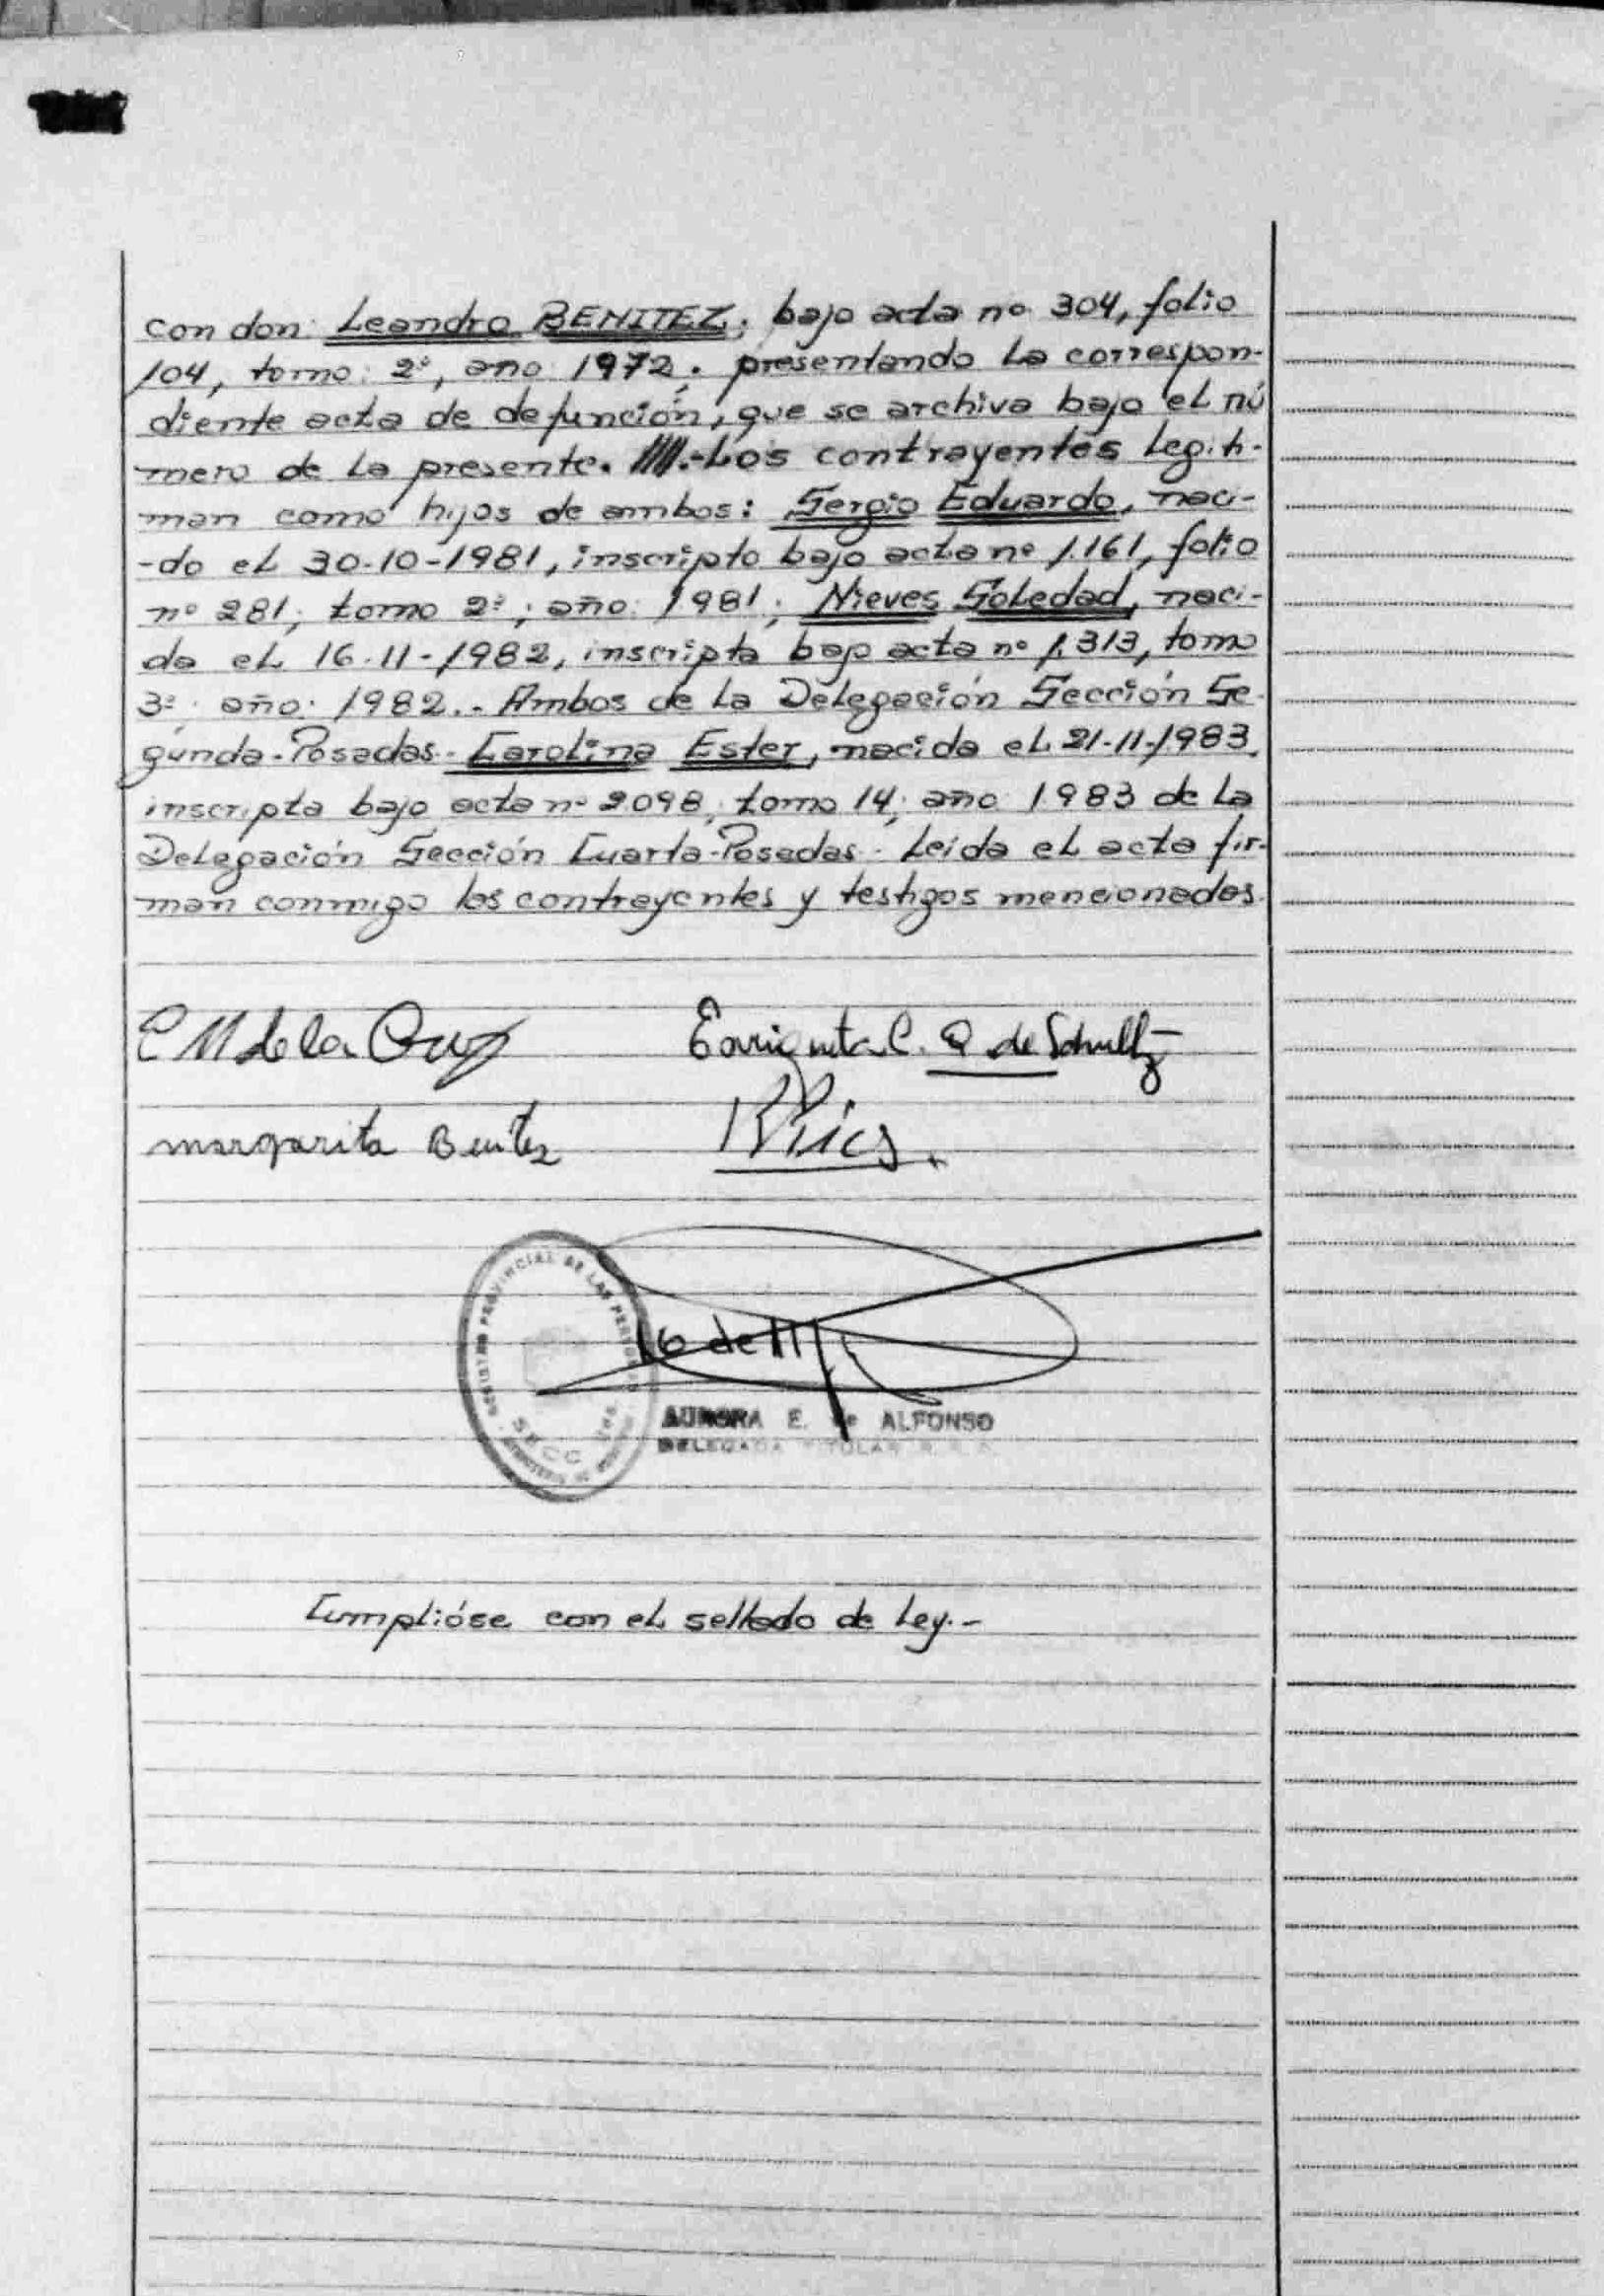 con don: Leandro BENITEZ; bajo acta nº 304, folio
104, tomo: 2º, año 1972; presentando la correspon-
diente acta de defunción, que se archiva bajo el nú
mero de la presente. ////.-Los contrayentes legiti-
man como hijos de ambos: Sergio Eduardo, naci-
-do el 30-10-1981, inscripto bajo acta nº 1.161, folio
nº 281; tomo 2º; año: 1981; Nieves Soledad, naci-
da el 16-11-1982, inscripta bajo acta nº 1.313, tomo
3º; año: 1982.- Ambos de la Delegación Sección Se-
gunda-Posadas- Carolina Ester, nacida el 21-11-1983,
inscripta bajo acta nº 2098; tomo 14; año 1983 de la
Delegación Sección Cuarta-Posadas- Leída el acta fir-
man conmigo los contrayentes y testigos mencionados.
E M de la Cruz
Enriqueta C. Q de Schultz
margarita Benitez
REGISTRO PROVINCIAL DE LAS PERSONAS
SECC
AURORA E. de ALFONSO
DELEGADA TITULAR
Cumplióse con el sellado de Ley.-